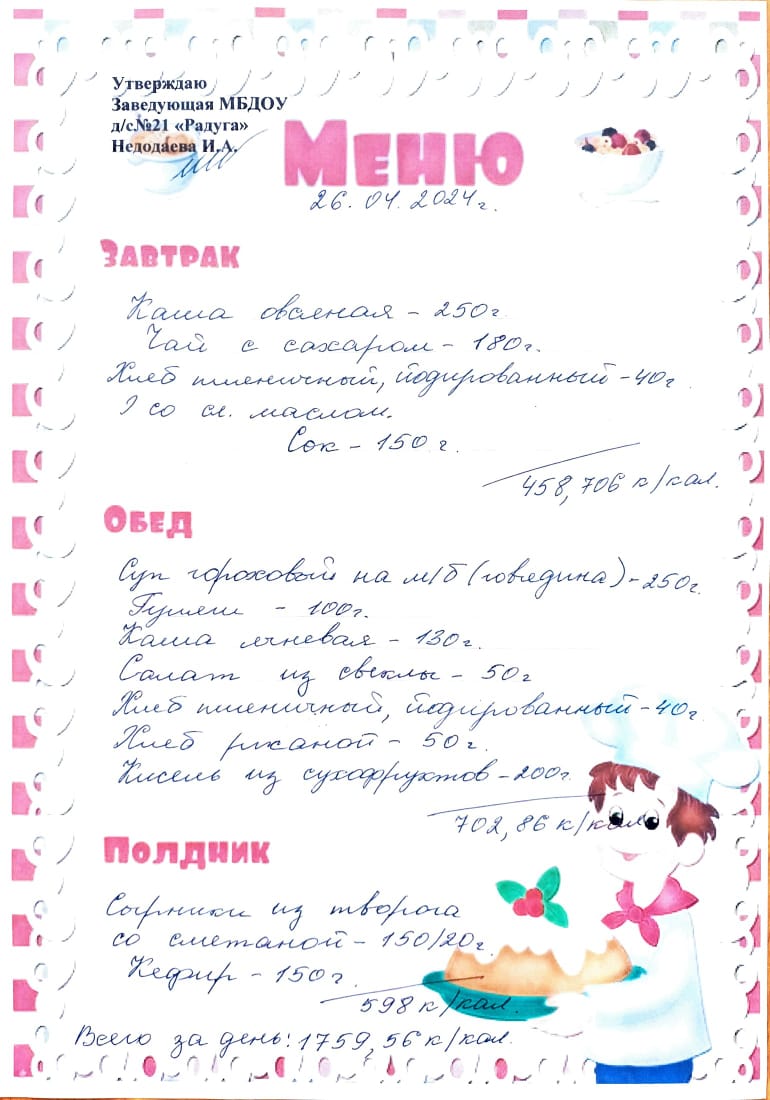 Утверждаю
Заведующая МБДОУ
д/с№21 «Радуга»
Недодаева И.А.
Меню
26.04.2024г.
Завтрак
Каша овсяная - 250г.
Чай с сахаром - 180г.
Хлеб пшеничный, йодированный - 40г.
со сл. маслом.
Сок - 150г.
458,706 к/кал.
Обед
Суп гороховый на м/б (говядина) - 250г.
Гуляш - 100г.
Каша ячневая - 130г.
Салат из свеклы - 50г
Хлеб пшеничный, йодированный - 40г.
Хлеб ржаной - 50г.
Кисель из сухофруктов - 200г.
702,86 к/кал
Полдник
Сырники из творога
со сметаной - 150/20г.
Кефир - 150г.
598 к/кал.
Всего за день: 1759,56 к/кал.